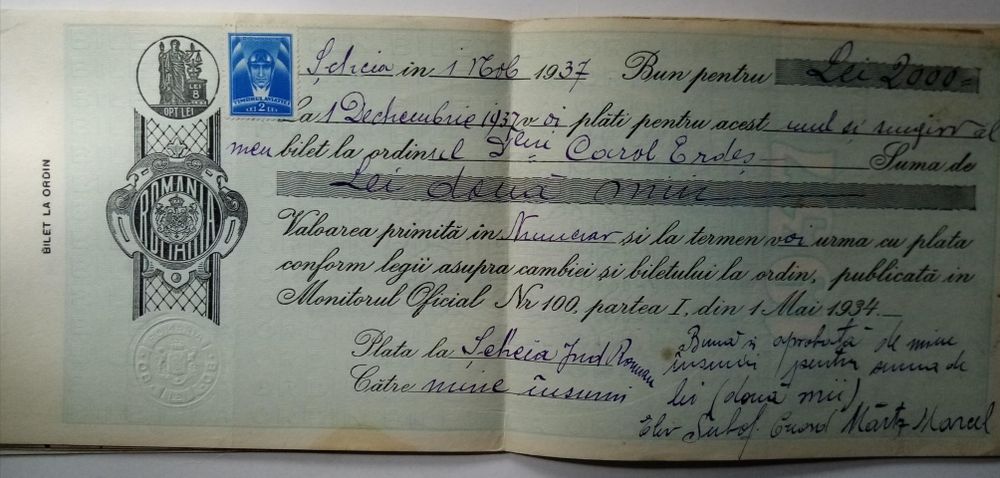 BILET LA ORDIN
LEI 8
OPT LEI
TIMBRUL AVIAȚIEI
LEI 2 LEI
ROMANIA
Șcheia in 1 Nob 1937 Bun pentru Lei 2000=
La 1 Dechembrie 1937 voi plăti pentru acest unul și singur al
meu bilet la ordinul Dlui Carol Erdeș — Suma de
Lei două mii
Valoarea primită in Numerar si la termen voi urma cu plata
conform legii asupra cambiei si biletului la ordin, publicată in
Monitorul Oficial Nr 100, partea I, din 1 Mai 1934.
Plata la Șcheia Jud Roman
Către mine însumi
Bună și aprobată de mine
însumi pentru suma de
lei (două mii)
Elev Subof. Mărtz Marcel